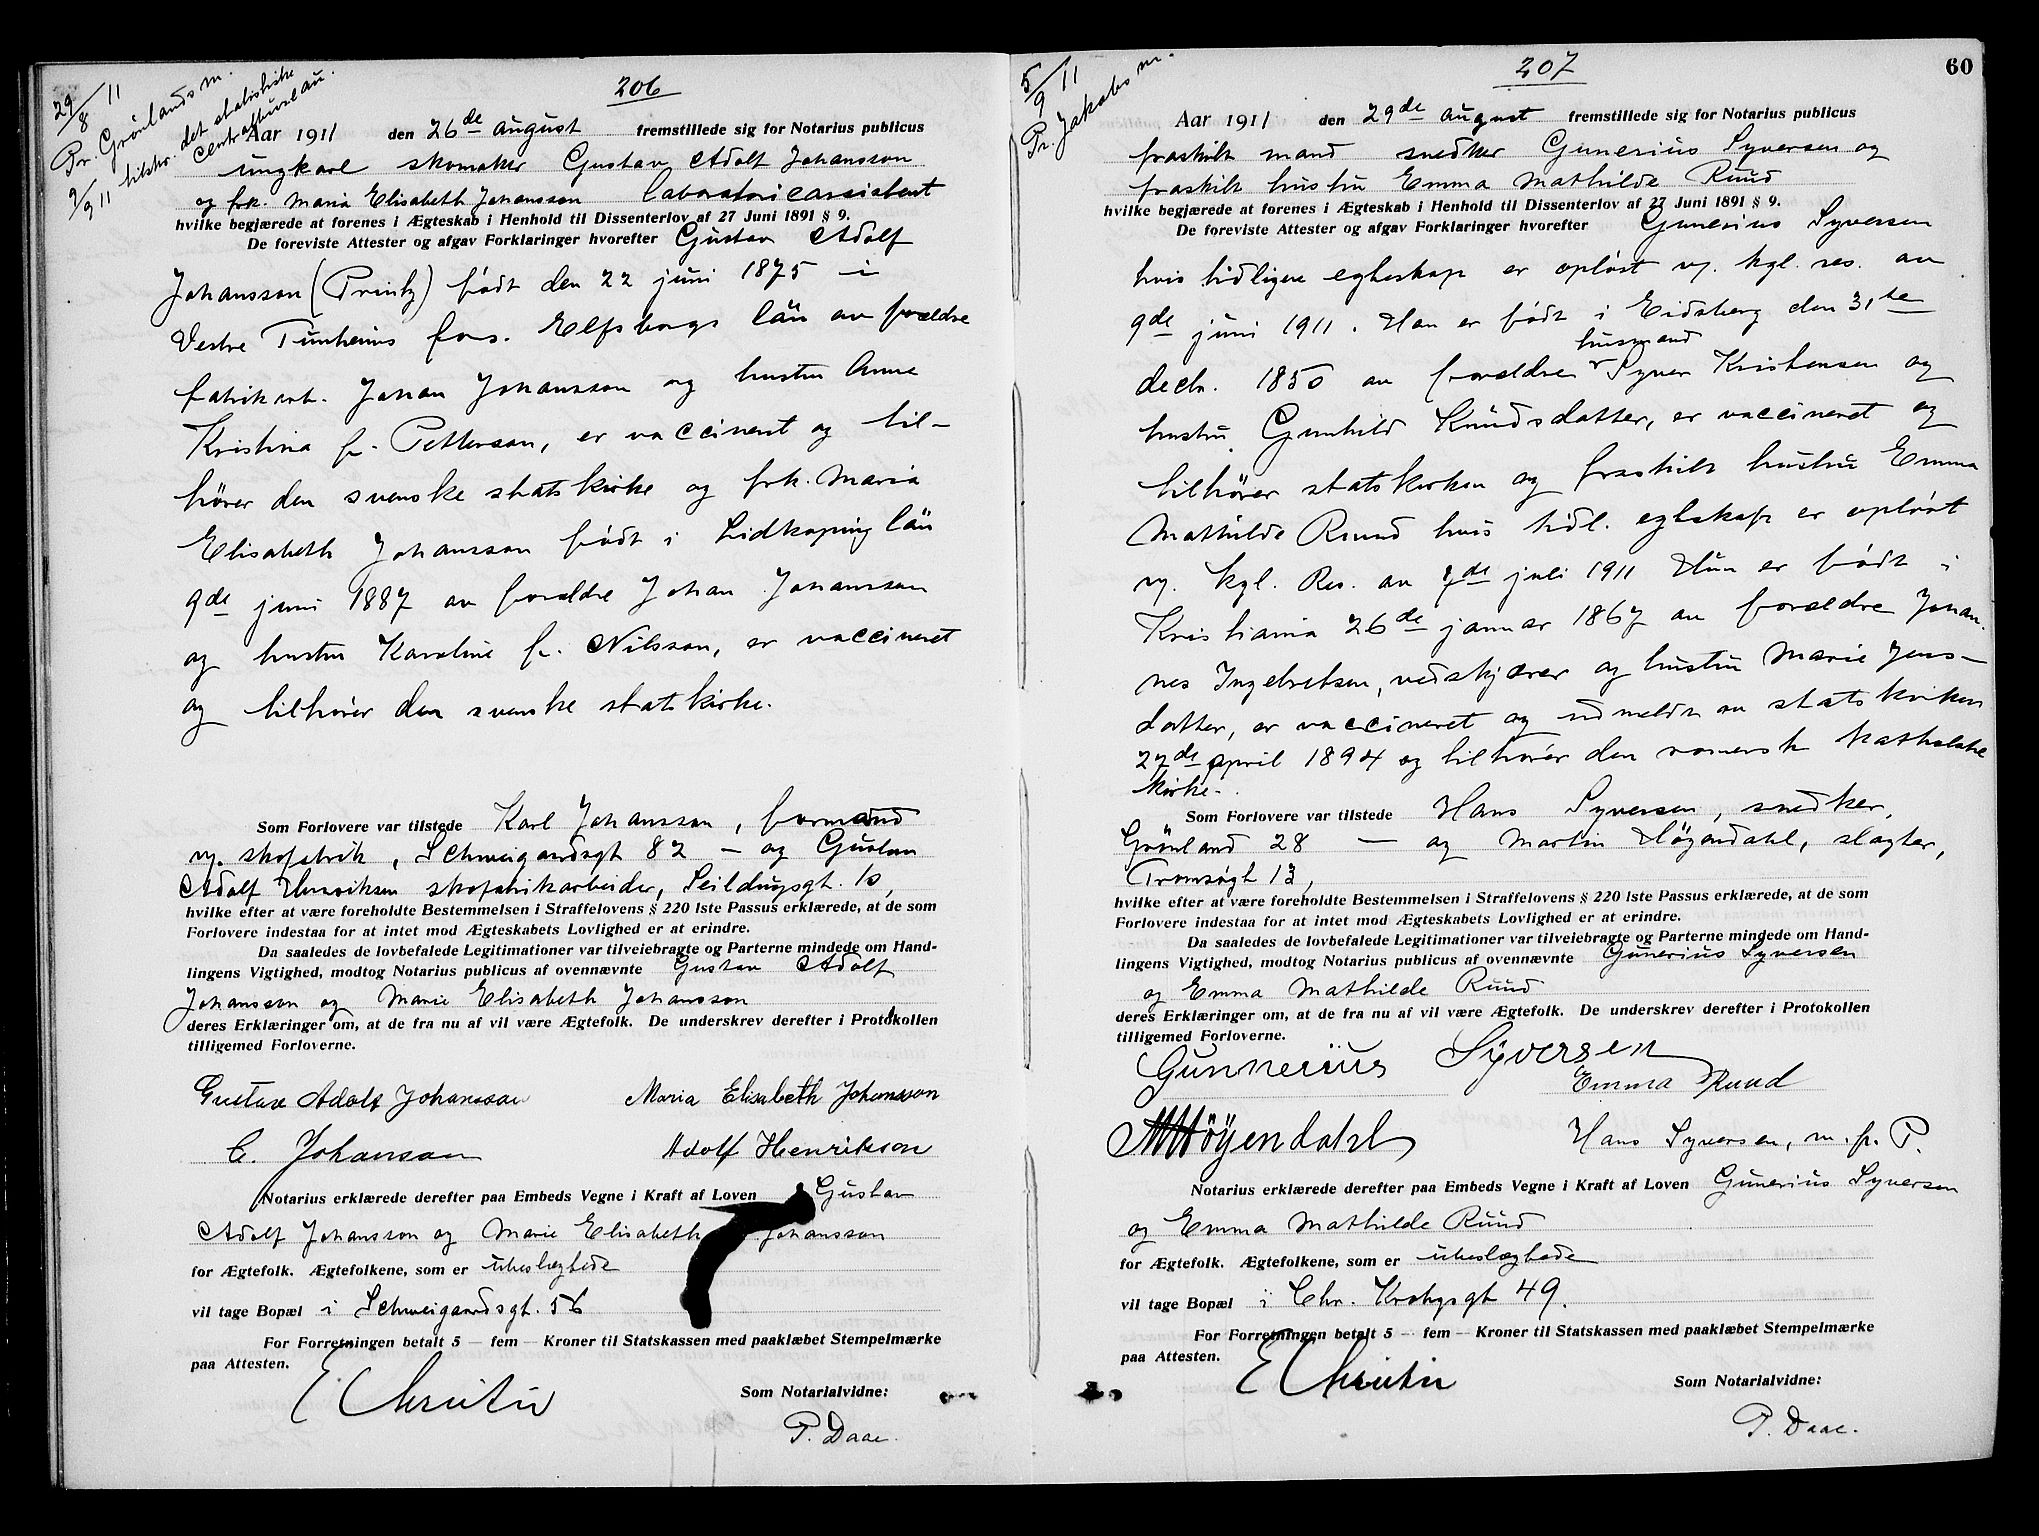 29/8 11
Pr. Grönlands m.
9/9 11 tilskr. det statistiske
centralbureau.
206
Aar 1911 den 26de august fremstillede sig for Notarius publicus
ungkarl skomaker Gustav Adolf Johansson
og frk. Maria Elisabeth Johansson laboratorieassistent
hvilke begjærede at forenes i Ægteskab i Henhold til Dissenterlov af 27 Juni 1891 § 9.
De foreviste Attester og afgav Forklaringer hvorefter Gustav Adolf
Johansson (Printz) født den 22 juni 1875 i
Vestre Tunhems fors. Elfsborgs län av forældre
fabrikarb. Johan Johansson og hustru Anna
Kristina f. Petterson, er vaccineret og til-
hører den svenske statskirke og frk. Maria
Elisabeth Johansson født i Lidkøping län
9de juni 1887 av forældre Johan Johansson
og hustru Karoline f. Nilsson, er vaccineret
og tilhører den svenske statskirke.
Som Forlovere var tilstede Karl Johansson, formand
v. skofabrik, Schweigaardsgt 82 — og Gustav
Adolf Henriksen skofabrikarbeider, Seildugsgt. 10,
hvilke efter at være foreholdte Bestemmelsen i Straffelovens § 220 1ste Passus erklærede, at de som
Forlovere indestaa for at intet mod Ægteskabets Lovlighed er at erindre.
Da saaledes de lovbefalede Legitimationer var tilveiebragte og Parterne mindede om Hand-
lingens Vigtighed, modtog Notarius publicus af ovennævnte Gustav Adolf
Johansson og Marie Elisabeth Johansson
deres Erklæringer om, at de fra nu af vil være Ægtefolk. De underskrev derefter i Protokollen
tilligemed Forloverne.
Gustav Adolf Johansson Maria Elisabeth Johansson
C. Johanson Adolf Henrikson
Notarius erklærede derefter paa Embeds Vegne i Kraft af Loven Gustav
Adolf Johansson og Marie Elisabeth Johansson
for Ægtefolk. Ægtefolkene, som er ubeslægtede
vil tage Bopæl i Schweigaardsgt. 56
For Forretningen betalt 5 — fem — Kroner til Statskassen med paaklæbet Stempelmærke
paa Attesten.
E Christie
Som Notarialvidne:
P. Daae.
5/9 11
Pr. Jakobs m.
207
60
Aar 1911 den 29de august fremstillede sig for Notarius publicus
fraskilt mand snedker Gunerius Syversen og
fraskilt hustru Emma Mathilde Ruud
hvilke begjærede at forenes i Ægteskab i Henhold til Dissenterlov af 27 Juni 1891 § 9.
De foreviste Attester og afgav Forklaringer hvorefter Gunerius Syversen
hvis tidligere egteskap er opløst v. kgl. res. av
9de juni 1911. Han er født i Eidsberg den 31te
husmand
decbr. 1850 av forældre Syver Kristensen og
hustru Gunhild Knudsdatter, er vaccineret og
tilhører statskirken og fraskilt hustru Emma
Mathilde Ruud hvis tidl. egteskap er opløst
v. kgl. Res. av 7de juli 1911 Hun er født i
Kristiania 26de januar 1867 av forældre Johan-
nes Ingebretsen, vedskjærer og hustru Marie Jens-
datter, er vaccineret og udmeldt av statskirken
27de april 1894 og tilhører den romersk katholske
kirke.
Som Forlovere var tilstede Hans Syversen, snedker,
Grönland 28 — og Martin Höyendahl, slagter,
Tromsøgt 13,
hvilke efter at være foreholdte Bestemmelsen i Straffelovens § 220 1ste Passus erklærede, at de som
Forlovere indestaa for at intet mod Ægteskabets Lovlighed er at erindre.
Da saaledes de lovbefalede Legitimationer var tilveiebragte og Parterne mindede om Hand-
lingens Vigtighed, modtog Notarius publicus af ovennævnte Gunerius Syversen
og Emma Mathilde Ruud
deres Erklæringer om, at de fra nu af vil være Ægtefolk. De underskrev derefter i Protokollen
tilligemed Forloverne.
Gunnerius Syversen
Emma Ruud
M Höyendahl Hans Syversen, m. p. P.
Notarius erklærede derefter paa Embeds Vegne i Kraft af Loven Gunerius Syversen
og Emma Mathilde Ruud
for Ægtefolk. Ægtefolkene, som er ubeslægtede
vil tage Bopæl i Chr. Krohgsgt 49.
For Forretningen betalt 5 — fem — Kroner til Statskassen med paaklæbet Stempelmærke
paa Attesten.
E Christie
Som Notarialvidne:
P. Daae.